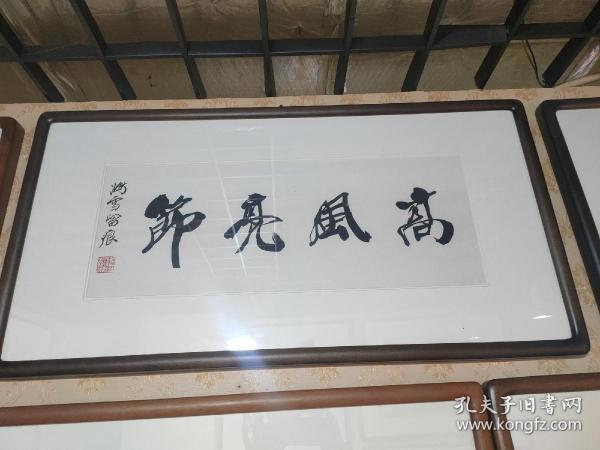 高風亮節
雪留痕
孔夫子旧书网
www.kongfz.com